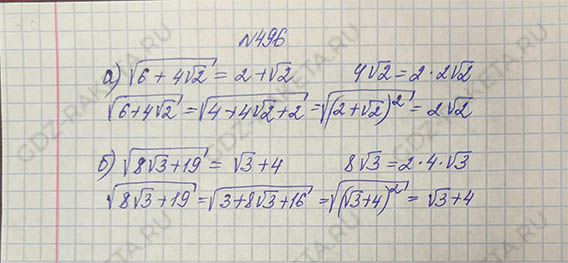 №496
а) √(6 + 4√2) = 2 + √2 4√2 = 2 · 2√2
√(6+4√2) = √(4+4√2+2) = √((2+√2)²) = 2√2
б) √(8√3+19) = √3+4 8√3 = 2·4·√3
√(8√3+19) = √(3+8√3+16) = √((√3+4)²) = √3+4
GDZ-RAKETA.RU